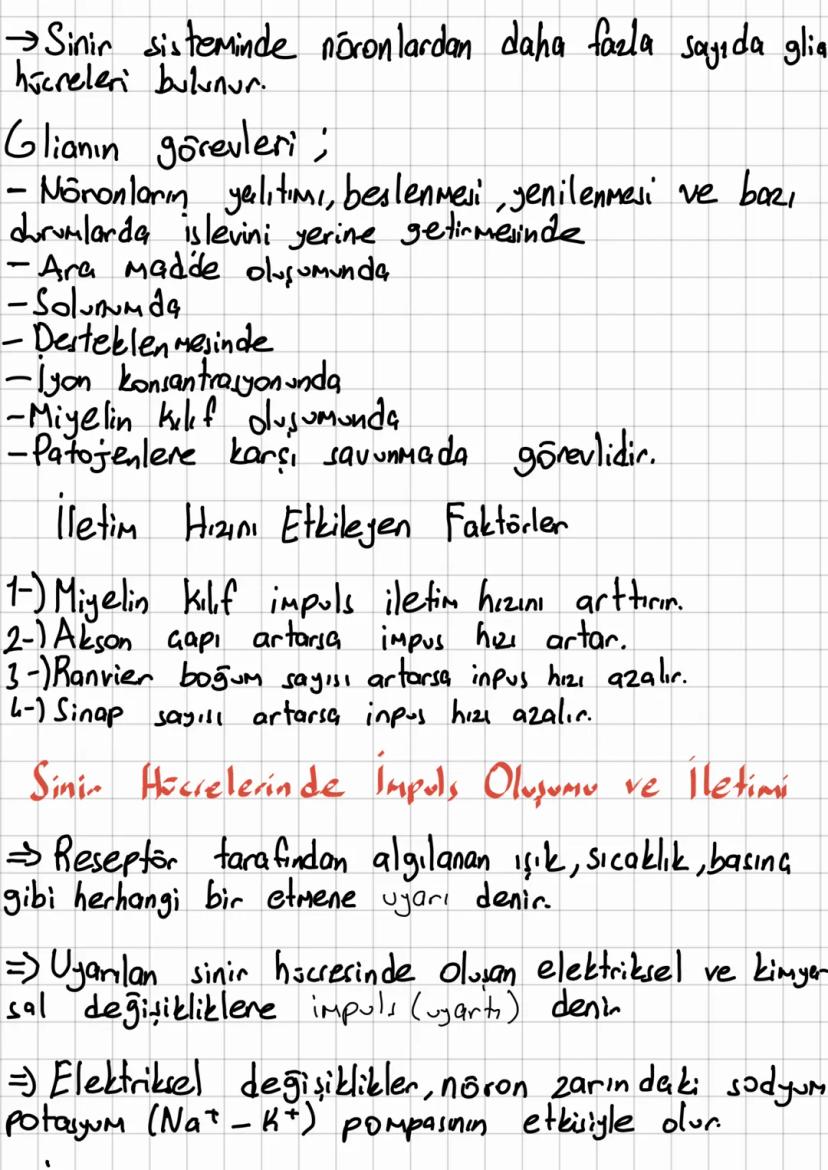 → Sinir sisteminde nöronlardan daha fazla sayıda glia
hücreleri bulunur.
Glianın görevleri ;
- Nöronların yalıtımı, beslenmesi, yenilenmesi ve bazı
durumlarda işlevini yerine getirmesinde
- Ara madde oluşumunda
- Solunumda
- Desteklenmesinde
- İyon konsantrasyonunda
- Miyelin kılıf oluşumunda
- Patojenlere karşı savunmada görevlidir.
İletim Hızını Etkileyen Faktörler
1-) Miyelin kılıf impuls iletim hızını arttırır.
2-) Akson çapı artarsa impus hızı artar.
3-) Ranvier boğum sayısı artarsa inpus hızı azalır.
4-) Sinap sayısı artarsa inpus hızı azalır.
Sinir Hücrelerinde İmpuls Oluşumu ve İletimi
⇒ Reseptör tarafından algılanan ışık, sıcaklık, basınç
gibi herhangi bir etmene uyarı denir.
⇒ Uyarılan sinir hücresinde oluşan elektriksel ve kimya-
sal değişikliklere impuls (uyartı) denir
⇒ Elektriksel değişiklikler, nöron zarındaki sodyum
potasyum (Na⁺ - K⁺) pompasının etkisiyle olur.